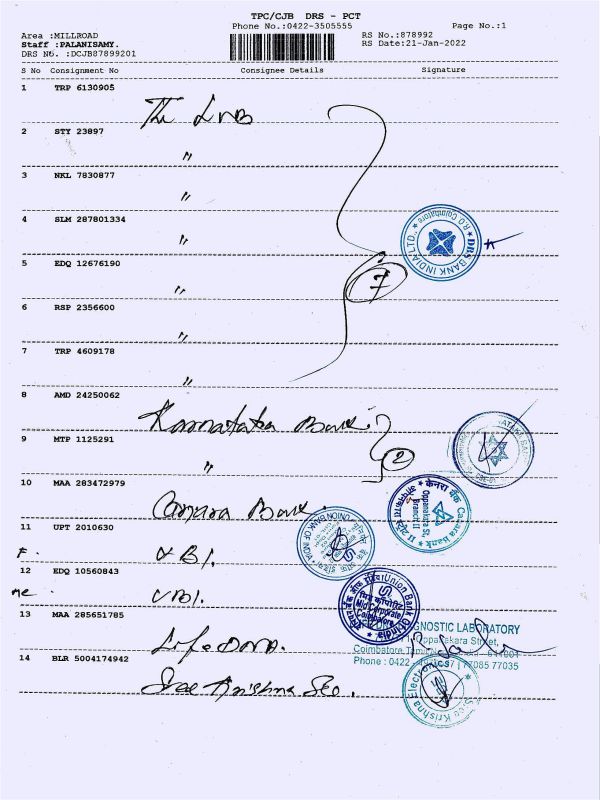 TPC/CJB DRS - PCT
Phone No.:0422-3505555
Page No.:1
Area :MILLROAD
RS No.:878992
Staff :PALANISAMY.
RS Date:21-Jan-2022
DRS No. :DCJB87899201
S No Consignment No Consignee Details Signature
1 TRP 6130905
The LVB
2 STY 23897
"
3 NKL 7830877
"
4 SLM 287801334
"
DRS BANK INDIA LTD. R.O Coimbatore
5 EDQ 12676190
"
7
6 RSP 2356600
"
7 TRP 4609178
"
8 AMD 24250062
Karnataka Bank
9 MTP 1125291
"
2
10 MAA 283472979
Canara Bank.
केनरा बैंक Canara Bank
Oppanakara St.
Branch II
11 UPT 2010630
F.
UBI.
UNION BANK OF INDIA
12 EDQ 10560843
me.
UBI.
Union Bank of India
मिड कॉर्पोरेट
Mid Corporate
Coimbatore
13 MAA 285651785
Life DNA.
DIAGNOSTIC LABORATORY
Oppanakara Street,
Coimbatore, 641001
Phone : 0422 77085 77035
14 BLR 5004174942
Sree Krishna Ele.
Sree Krishna Electronics